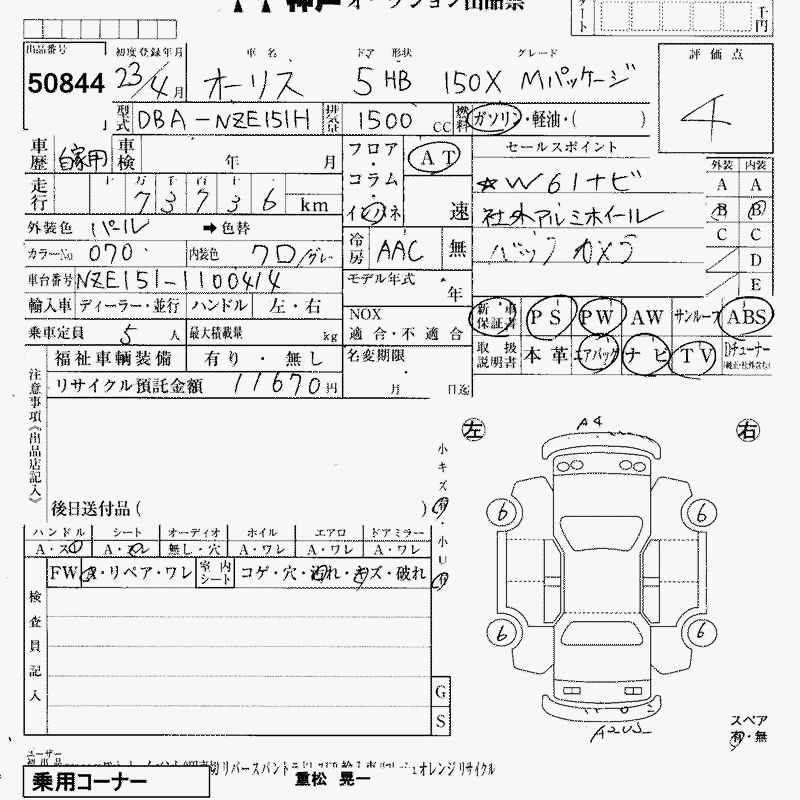 神戸オークション出品票
千円
出品番号 50844
初度登録年月 23/4月
車名 オーリス
ドア 形状 5 HB
グレード 150X Mパッケージ
評価点 4
型式 DBA-NZE151H
排気量 1500 CC
燃料 ガソリン・軽油・( )
車歴 自家用
車検 年 月
フロア・コラム・インパネ
AT
速
セールスポイント
☆W61ナビ
社外アルミホイール
バックカメラ
外装 内装
A A
B B
C C
D
E
走行 万 千 百 十 73736 km
外装色 パール ➡色替
カラーNo 070
内装色 クロ/グレー
冷房 AAC 無
車台番号 NZE151-1100414
モデル年式 年
輸入車 ディーラー・並行 ハンドル 左・右
NOX 適合・不適合
新車保証書 PS PW AW サンルーフ ABS
乗車定員 5人 最大積載量 kg
取扱説明書 本革 エアバッグ ナビ TV Dチューナー
福祉車輌装備 有り・無し
名変期限 月 日迄
リサイクル預託金額 11670円
注意事項《出品店記入》
後日送付品( )
小キズ有・小U有
左
右
A4
6 6
6 6
A2US
ハンドル シート オーディオ ホイル エアロ ドアミラー
A・スレ A・スレ 無し・穴 A・ワレ A・ワレ A・ワレ
FW X・リペア・ワレ 室内シート コゲ・穴・汚れ・キズ・破れ
検査員記入
G
S
スペア
有・無
ユーザー
乗用コーナー
重松 晃一
オレンジリサイクル